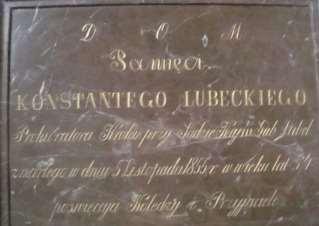 D O M
Pamięci
KONSTANTEGO LUBECKIEGO
przy Sądzie Gub Lubel
zmarłego w dniu 5 Listopada 1855 r w wieku lat 54
poświęcają Koledzy i Przyjaciele